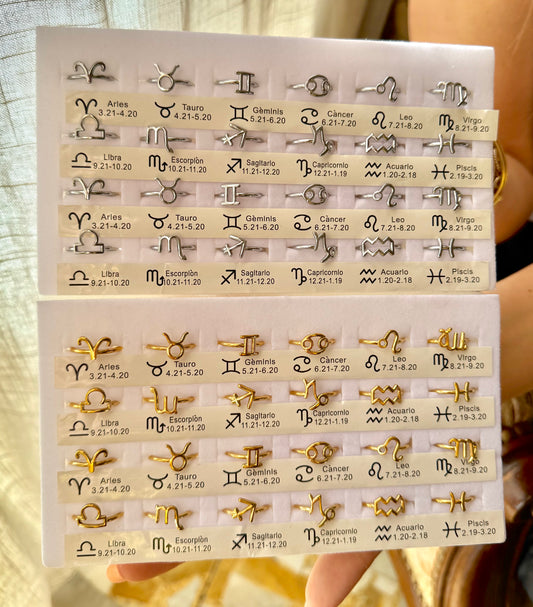 Aries Tauro Gèminis Càncer Leo Virgo
3.21-4.20 4.21-5.20 5.21-6.20 6.21-7.20 7.21-8.20 8.21-9.20
Libra Escorpiòn Sagitario Capricornio Acuario Piscis
9.21-10.20 10.21-11.20 11.21-12.20 12.21-1.19 1.20-2.18 2.19-3.20
Aries Tauro Gèminis Càncer Leo Virgo
3.21-4.20 4.21-5.20 5.21-6.20 6.21-7.20 7.21-8.20 8.21-9.20
Libra Escorpiòn Sagitario Capricornio Acuario Piscis
9.21-10.20 10.21-11.20 11.21-12.20 12.21-1.19 1.20-2.18 2.19-3.20
Aries Tauro Gèminis Càncer Leo Virgo
3.21-4.20 4.21-5.20 5.21-6.20 6.21-7.20 7.21-8.20 8.21-9.20
Libra Escorpiòn Sagitario Capricornio Acuario Piscis
9.21-10.20 10.21-11.20 11.21-12.20 12.21-1.19 1.20-2.18 2.19-3.20
Aries Tauro Gèminis Càncer Leo Virgo
3.21-4.20 4.21-5.20 5.21-6.20 6.21-7.20 7.21-8.20 8.21-9.20
Libra Escorpiòn Sagitario Capricornio Acuario Piscis
9.21-10.20 10.21-11.20 11.21-12.20 12.21-1.19 1.20-2.18 2.19-3.20